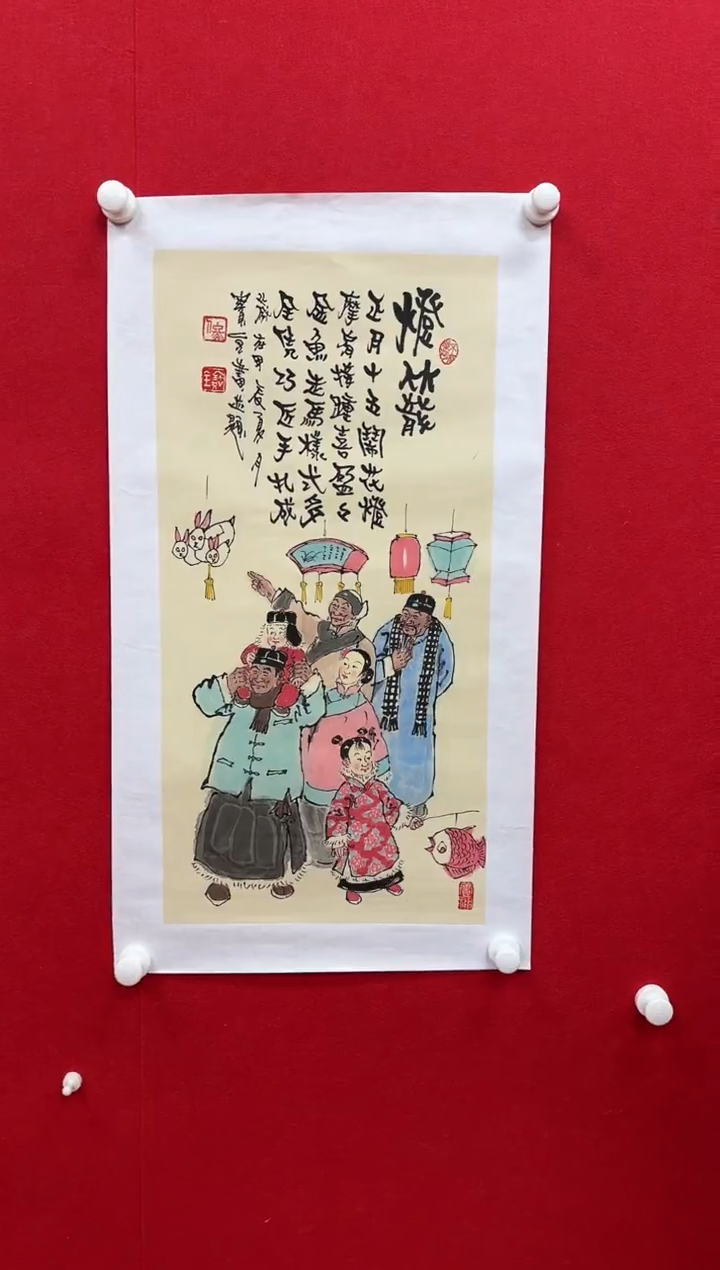 燈籠
正月十五鬧花燈
摩肩接踵喜盈々
金魚走馬樣式多
全憑巧匠手扎成
歲在甲辰夏月
畫並題